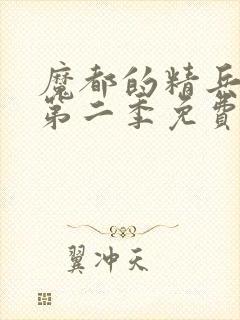 魔都的精兵
第二季免費
翼冲天